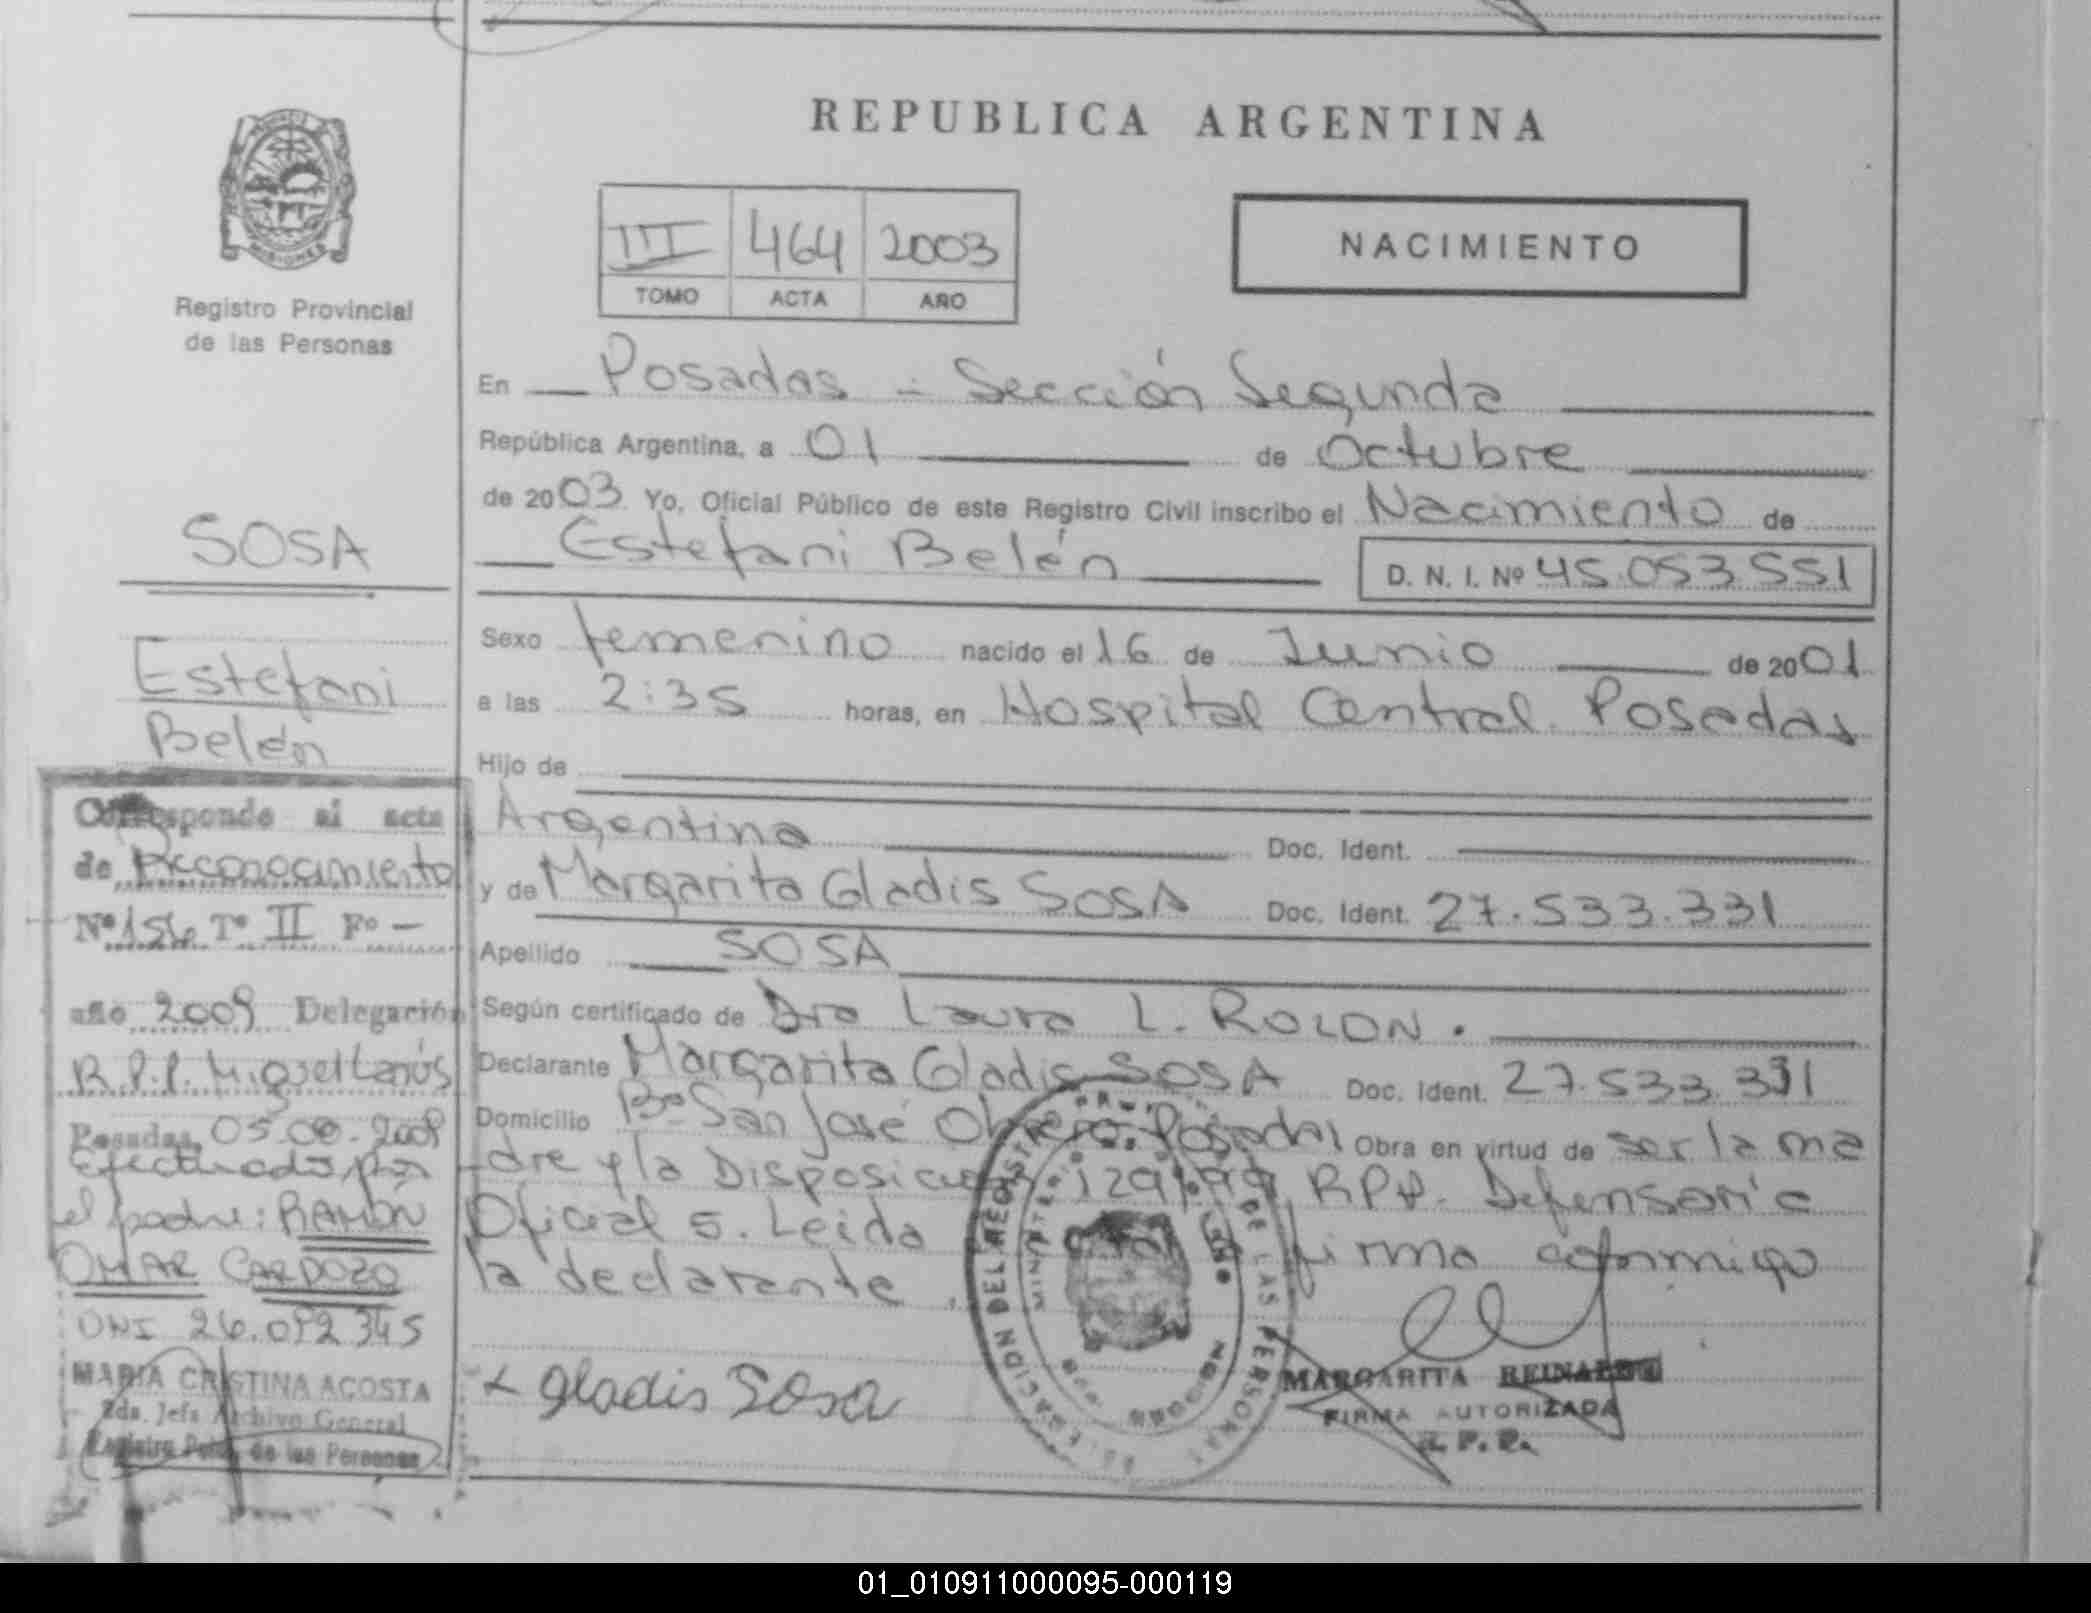 REPUBLICA ARGENTINA
MISIONES
Registro Provincial
de las Personas
III 464 2003
TOMO ACTA AÑO
NACIMIENTO
En Posadas - Sección Segunda
República Argentina, a 01 de Octubre
de 2003 Yo, Oficial Público de este Registro Civil inscribo el Nacimiento de
Estefani Belén D. N. I. Nº 45.053.551
Sexo femenino nacido el 16 de Junio de 2001
a las 2:35 horas, en Hospital Central Posadas
Hijo de
Argentina Doc. Ident.
y de Margarita Gladis SOSA Doc. Ident. 27.533.331
Apellido SOSA
Según certificado de Dra Laura L. ROLON.
Declarante Margarita Gladis SOSA Doc. Ident. 27.533.331
Domicilio Bº San José Obrero. Posadas Obra en virtud de ser la ma
dre y la Disposición 129/99 RPP. Defensoría
Oficial 5. Leída firma conmigo
la declarante.
Gladis Sosa
MARGARITA
FIRMA AUTORIZADA
R. P. P.
SOSA
Estefani
Belén
Corresponde al acta
de Reconocimiento
Nº 156 Tº II Fº -
año 2009 Delegación
R.P.P. Miguel Lanús
Posadas, 2009
Efectuado por
el padre: RAMON
OMAR CARDOZO
DNI 26.092.345
MARIA CRISTINA ACOSTA
2da. Jefa Archivo General
Registro Pcial. de las Personas
DELEGACION DEL REGISTRO DE LAS PERSONAS
01_010911000095-000119